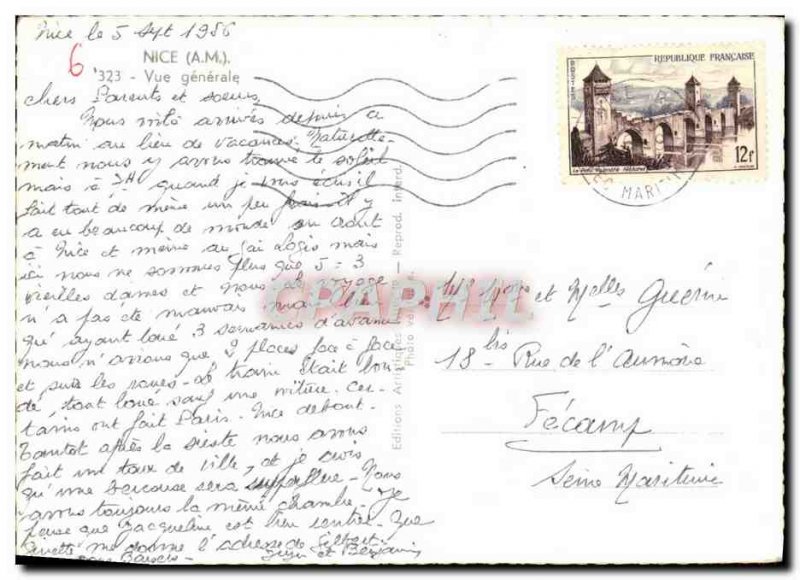 Nice le 5 Sept 1956
6
NICE (A.M.).
323 - Vue générale
chers Parents et soeurs
Nous voilà arrivés depuis ce
matin au lieu de vacances. Naturelle-
ment nous y avons trouvé le soleil
mais à 3H quand je vous écris il
fait tout de même un peu frais il y
a eu beaucoup de monde en août
à Nice et même au gai Logis mais
ici nous ne sommes plus que 5 = 3
vieilles dames et nous. Le voyage
n'a pas été mauvais mais
qu'ayant loué 3 semaines d'avance
nous n'avions que 2 places face à face
et sur les roues - Le train était bon-
dé, tout loué sauf une voiture. Cer-
tains ont fait Paris-Nice debout.
Tantôt après la sieste nous avons
fait un tour de ville, et je crois
qu'une berceuse sera superflue - Nous
avons toujours la même chambre. Je
pense que Jacqueline est bien rentrée. Que
me donne l'adresse de Gilbert.
Bons Baisers -
et Benjamin
Editions Artistiques
Reprod. Interd.
POSTES
REPUBLIQUE FRANÇAISE
12F
MARIT
CPAPHIL
et Melles Guérin
18 bis Rue de l'Aumône
Fécamp
Seine Maritime